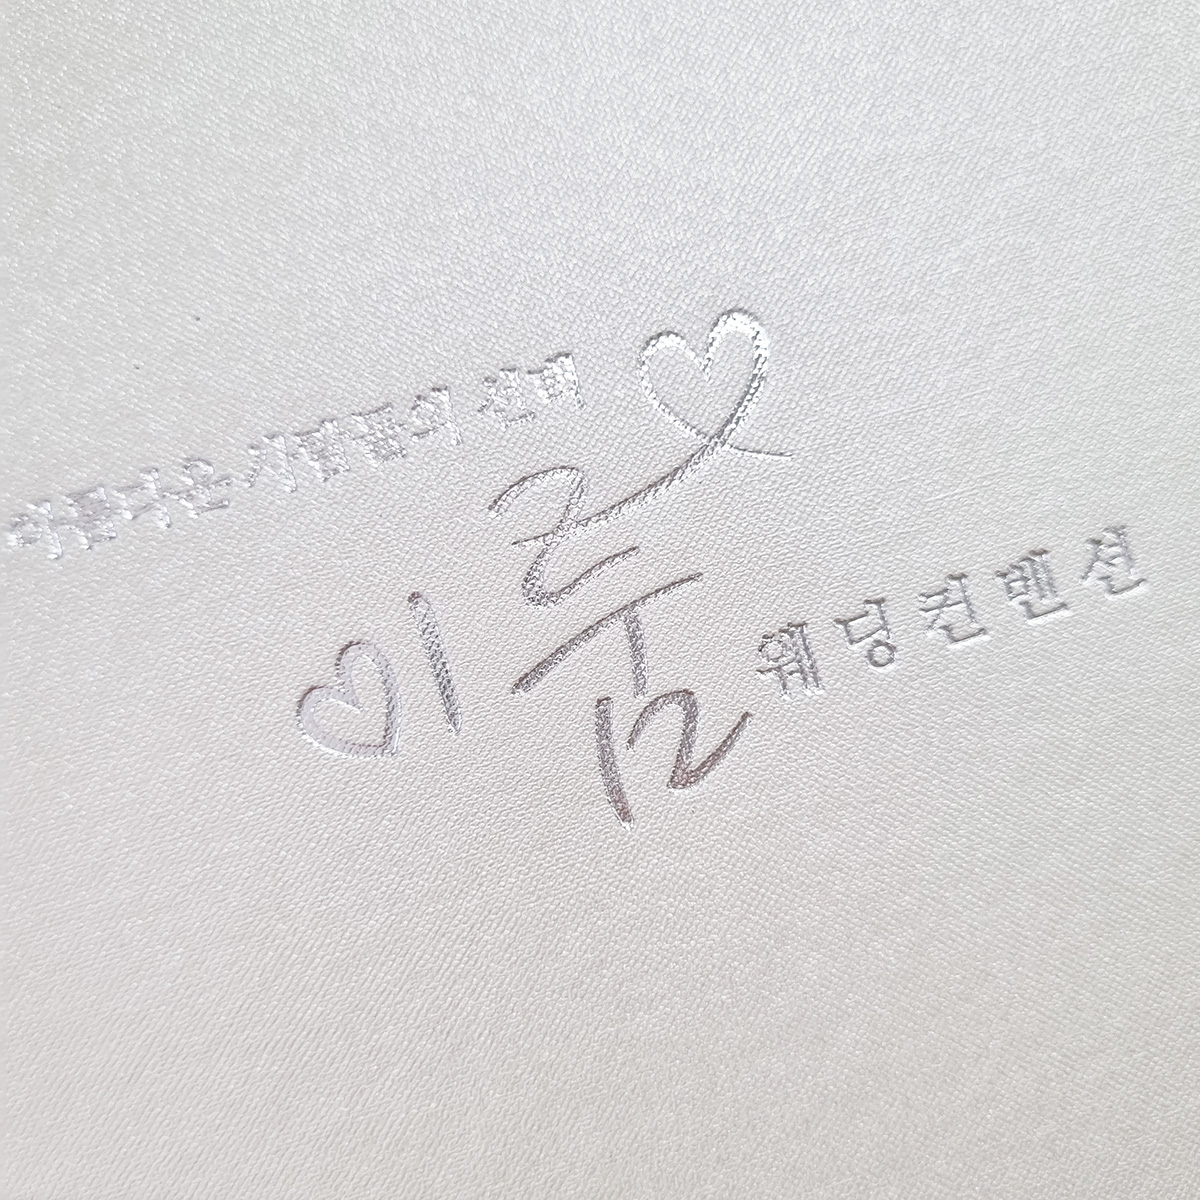 아름다운 사람들의 선택
이룸 웨딩컨벤션